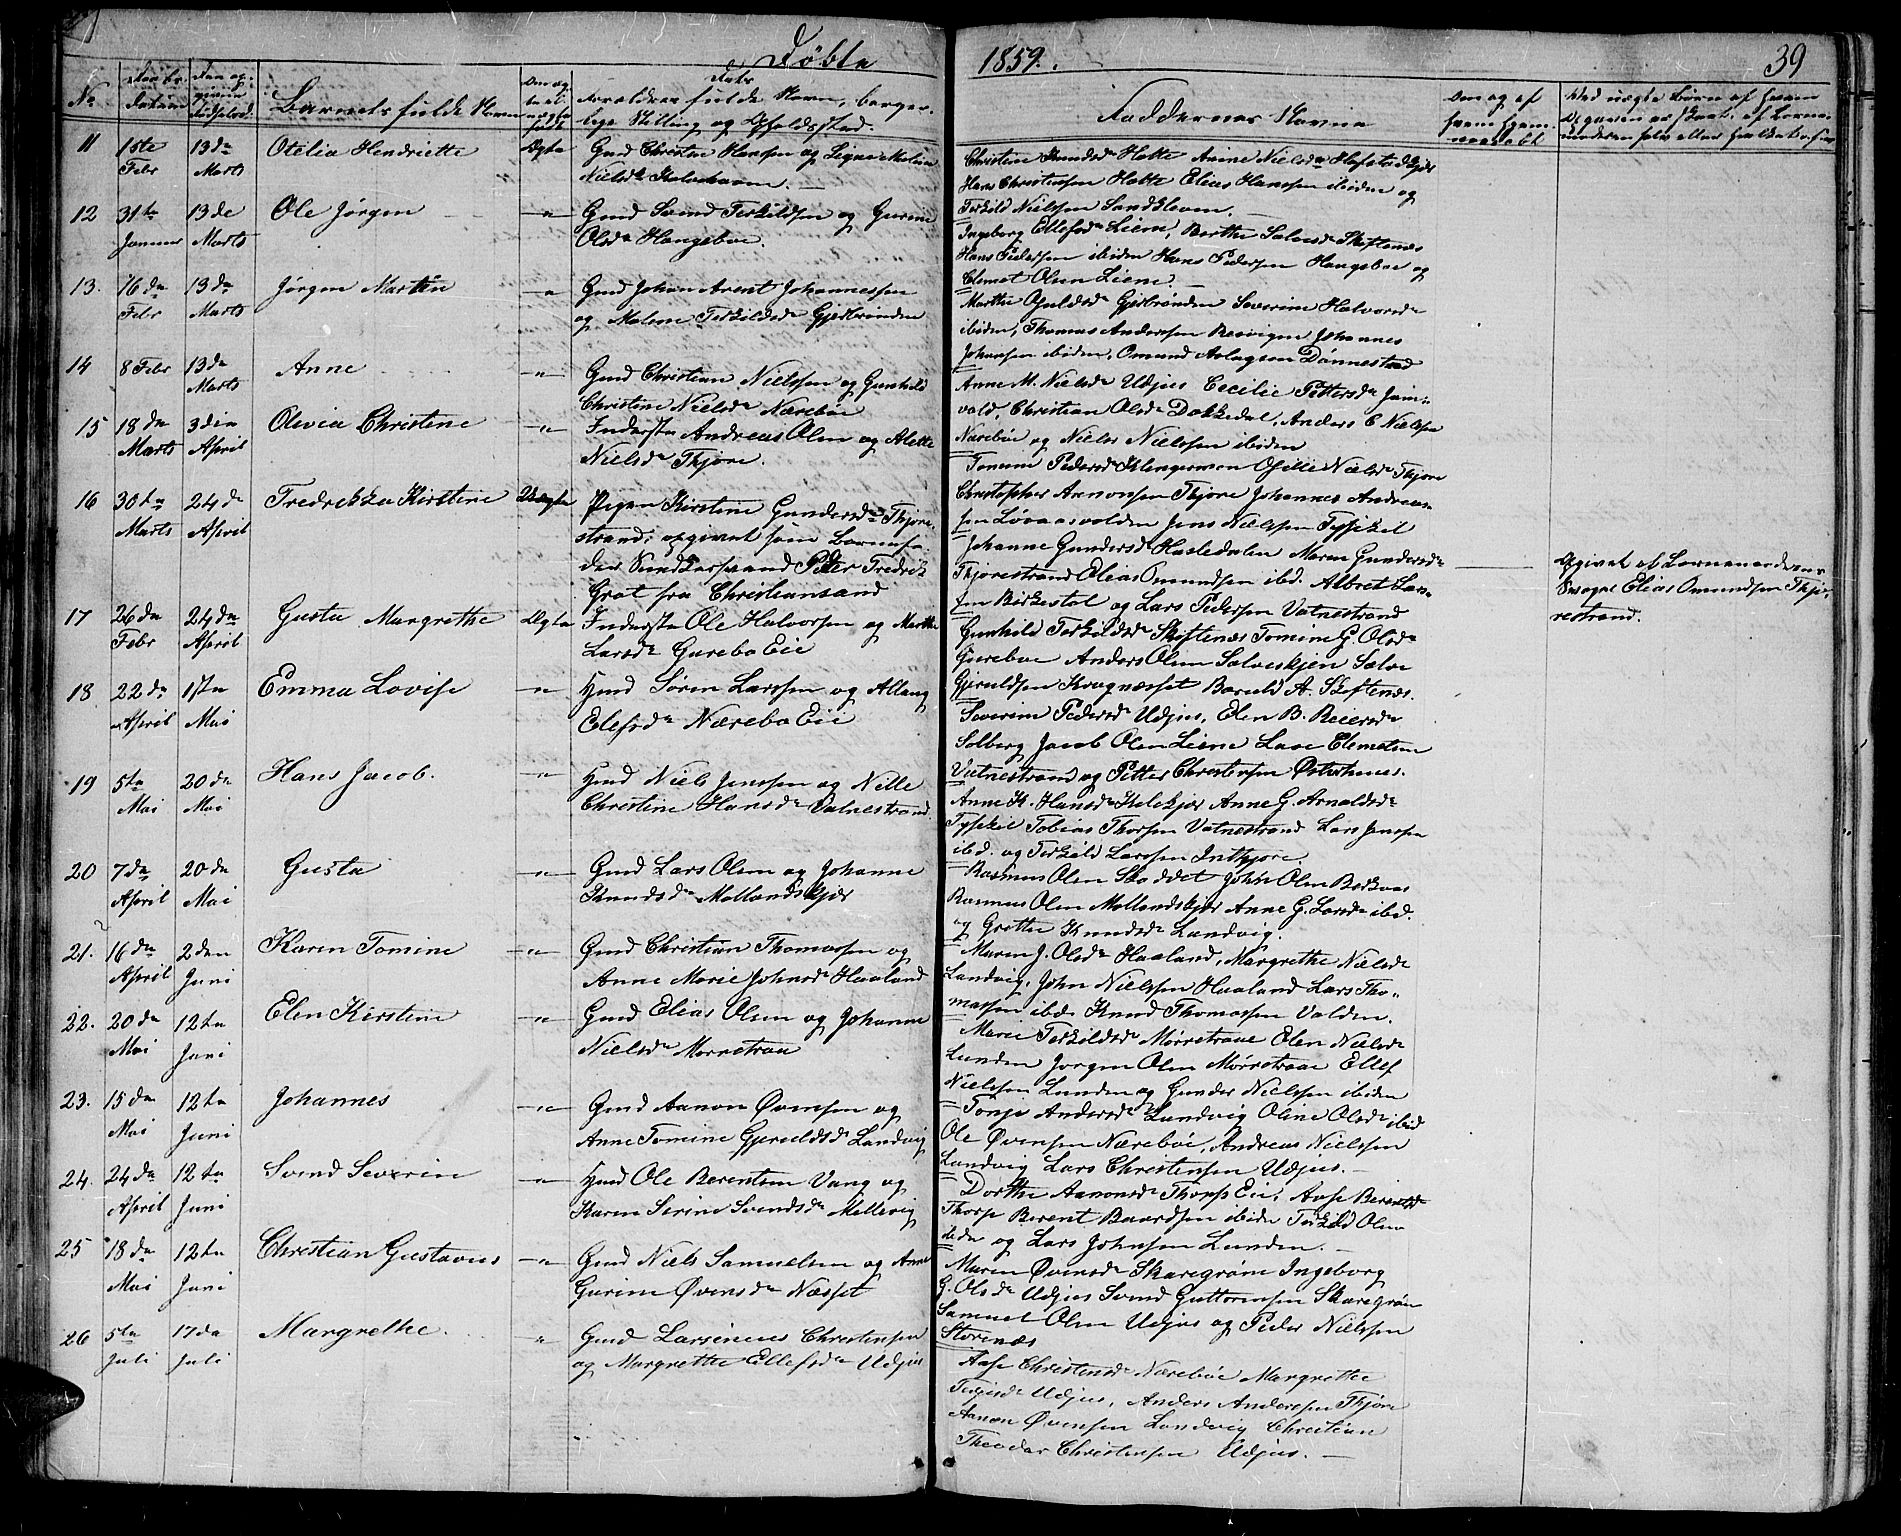 Døbte
1859.
39
No
Barnets fulde Navn
Forældres fulde Navn, borger-
lige Stilling og Opholdssted.
Faddernes Navne
11 1ste Febr 13de Marts Otelia Henriette Ægte
Gmd Christen Hansen og Signe Malene
Nielsdr
Christine Knudsdr Holte Anine Nielsdr
Hans Christensen Holte Elias Hanssen ibiden og
Terkild Nielssen Sandkleven.
12 31te Januar 13de Marts Ole Jørgen —"—
Gmd Svend Terkildsen og Gurine
Olsdr Haugeboe.
Ingeborg Ellefsdr Liene, Berthe Salvesdr Skiftenæs
Hans Pedersen ibiden Hans Pedersen Haugeboe og
Clemet Olsen Liene.
13. 16de Febr 13de Marts Jørgen Martin —"
Gmd Johan Arent Johannessen
og Malene Terkildsdr Gjedbrønden
Marthe Ofuldsdr Gjedbrønden Severine Halvorsdr
ibiden, Thomas Anderssen Beovigen Johannes
Johansen ibiden, Omund Aslagsen Dønnestad
14 8 Febr 13de Marts Anne —"—
Gmd Christian Nielssen og Gunhild
Christine Nielsdr Nærebøe
Anne M. Nielsdr Udjus Cecilie Pettersdr Jam-
vold, Christian Olsdr Dokkedal, Anders E Nielsen
Nærebøe og Niels Nielssen ibiden
15 18de Marts 3die April Olivia Christine —"—
Inderste Andreas Olsen og Alette
Nielsdr Thjore.
Tomine Pedersdr Klengermoen Ofelle Nielsdr Thjore
Christopher Aanonsen Thjore Johannes Andreas-
sen Løvaasvolden Jens Nielssen Tyskel
16 30te Marts 24de April Fredrikka Kirstine Uægte
Pigen Kirstine Gundersdr Thjore-
strand, opgivet som Barnefa-
der Ungkarsmand Peder Fredrik
Grot fra Christiansand
Johanne Gundersdr Hasledalen Maren Gundersdr
Thjorestrand Elias Omundsen ibd. Albret Lar-
sen Birkestøl og Lars Pedersen Vatnestrand
Opgivet af Barnemoderens
Svoger Elias Omundsen Thjo-
restrand.
17 26de Febr 24de April Gusta Margrethe Ægte
Inderste Ole Halvorsen og Marthe
Larsdr Gurebo Eie
Gunhild Terkildsdr Skiftenæs Tomine G. Olsdr
Gureboe Anders Olsen Salveskjen Salve
Gjeruldsen Kragnæsset Baruld A. Skiftenæs.
18 22de April 1ste Mai Emma Lovise —"—
Hmd Søren Larssen og Allaug
Elefsdr Nærebo Eie
Severine Pedersdr Udjus, Elen B. Reiersdr
Solberg Jacob Olsen Liene Lars Clemetsen
Vatnestrand og Petter Christensen Østerhus.
19 5te Mai 20de Mai Hans Jacob. —"—
Hmd Niels Jenssen og Nille
Christine Hansdr Vatnestrand.
Anne K. Hansdr Kelekjær Anne G. Arnoldsdr
Tyskel Tobias Thorsen Vatnestrand Lars Jenssen
ibd. og Terkild Larssen Inthjore.
20 7de April 20de Mai Gusta —"—
Gmd Lars Olsen og Johanne
Knudsdr Mollandskjær
Rasmus Olsen Skoddet John Olsen Birkaas
Rasmus Olsen Mollandskjær Anne G. Larsdr ibd.
og Grethe Knudsdr Landvig.
21. 16de April 2den Juni Karen Tomine —"—
Gmd Christian Thomassen og
Anne Marie Johnsdr Haaland
Maren J. Olsdr Haaland, Margrethe Nielsdr
Landvig, John Nielssen Haaland Lars Tho-
massen ibd. Knud Thomassen Valden.
22. 20de Mai 12te Juni Elen Kirstine —"—
Gmd Elias Olsen og Johanne
Nielsdr Morretraa
Marie Terkildsdr Mørretraae Elen Nielsdr
Lunden Jørgen Olsen Mørretraae Ellef
Nielssen Lunden og Gunder Nielssen ibiden
23. 15de Mai 12te Juni Johannes —"—
Gmd Aanon Øvensen og
Anne Tomine Gjeruldsdr Landvig
Tonje Andersdr Landvig Oline Olsdr ibid
Ole Øvensen Nærebøe, Andreas Nielssen
Landvig Lars Christensen Udjus.
24. 24de April 12te Juni Svend Severin —"—
Hmd Ole Berentsen Vang og
Karen Serine Svendsdr Mollevig
Dorthe Aanonsdr Thorp Eie, Aase Berentsdr
Thorp Berent Baardsen ibiden Terkild Olsen
ibiden og Lars Johnsen Lunden.
25 18de Mai 12te Juni Christian Gustavus —"—
Gmd Niels Samuelsen og Anne
Gurine Øvensdr Næsset
Maren Øvensdr Skaregrøm Ingeborg
G. Olsdr Udjus Svend Guttormsen Skaregrøm
Samuel Olsen Udjus og Peder Nielssen
Storenæs
26 5te Juli 17de Juli Margrethe. "
Gmd Larsenius Christensen
og Margrethe Ellefsdr Udjus
Aase Christensdr Nærebøe Margrethe
Terjesdr Udjus, Anders Anderssen Thjore
Aanon Øvensen Landvig Christian
Theodor Christensen Udjus.